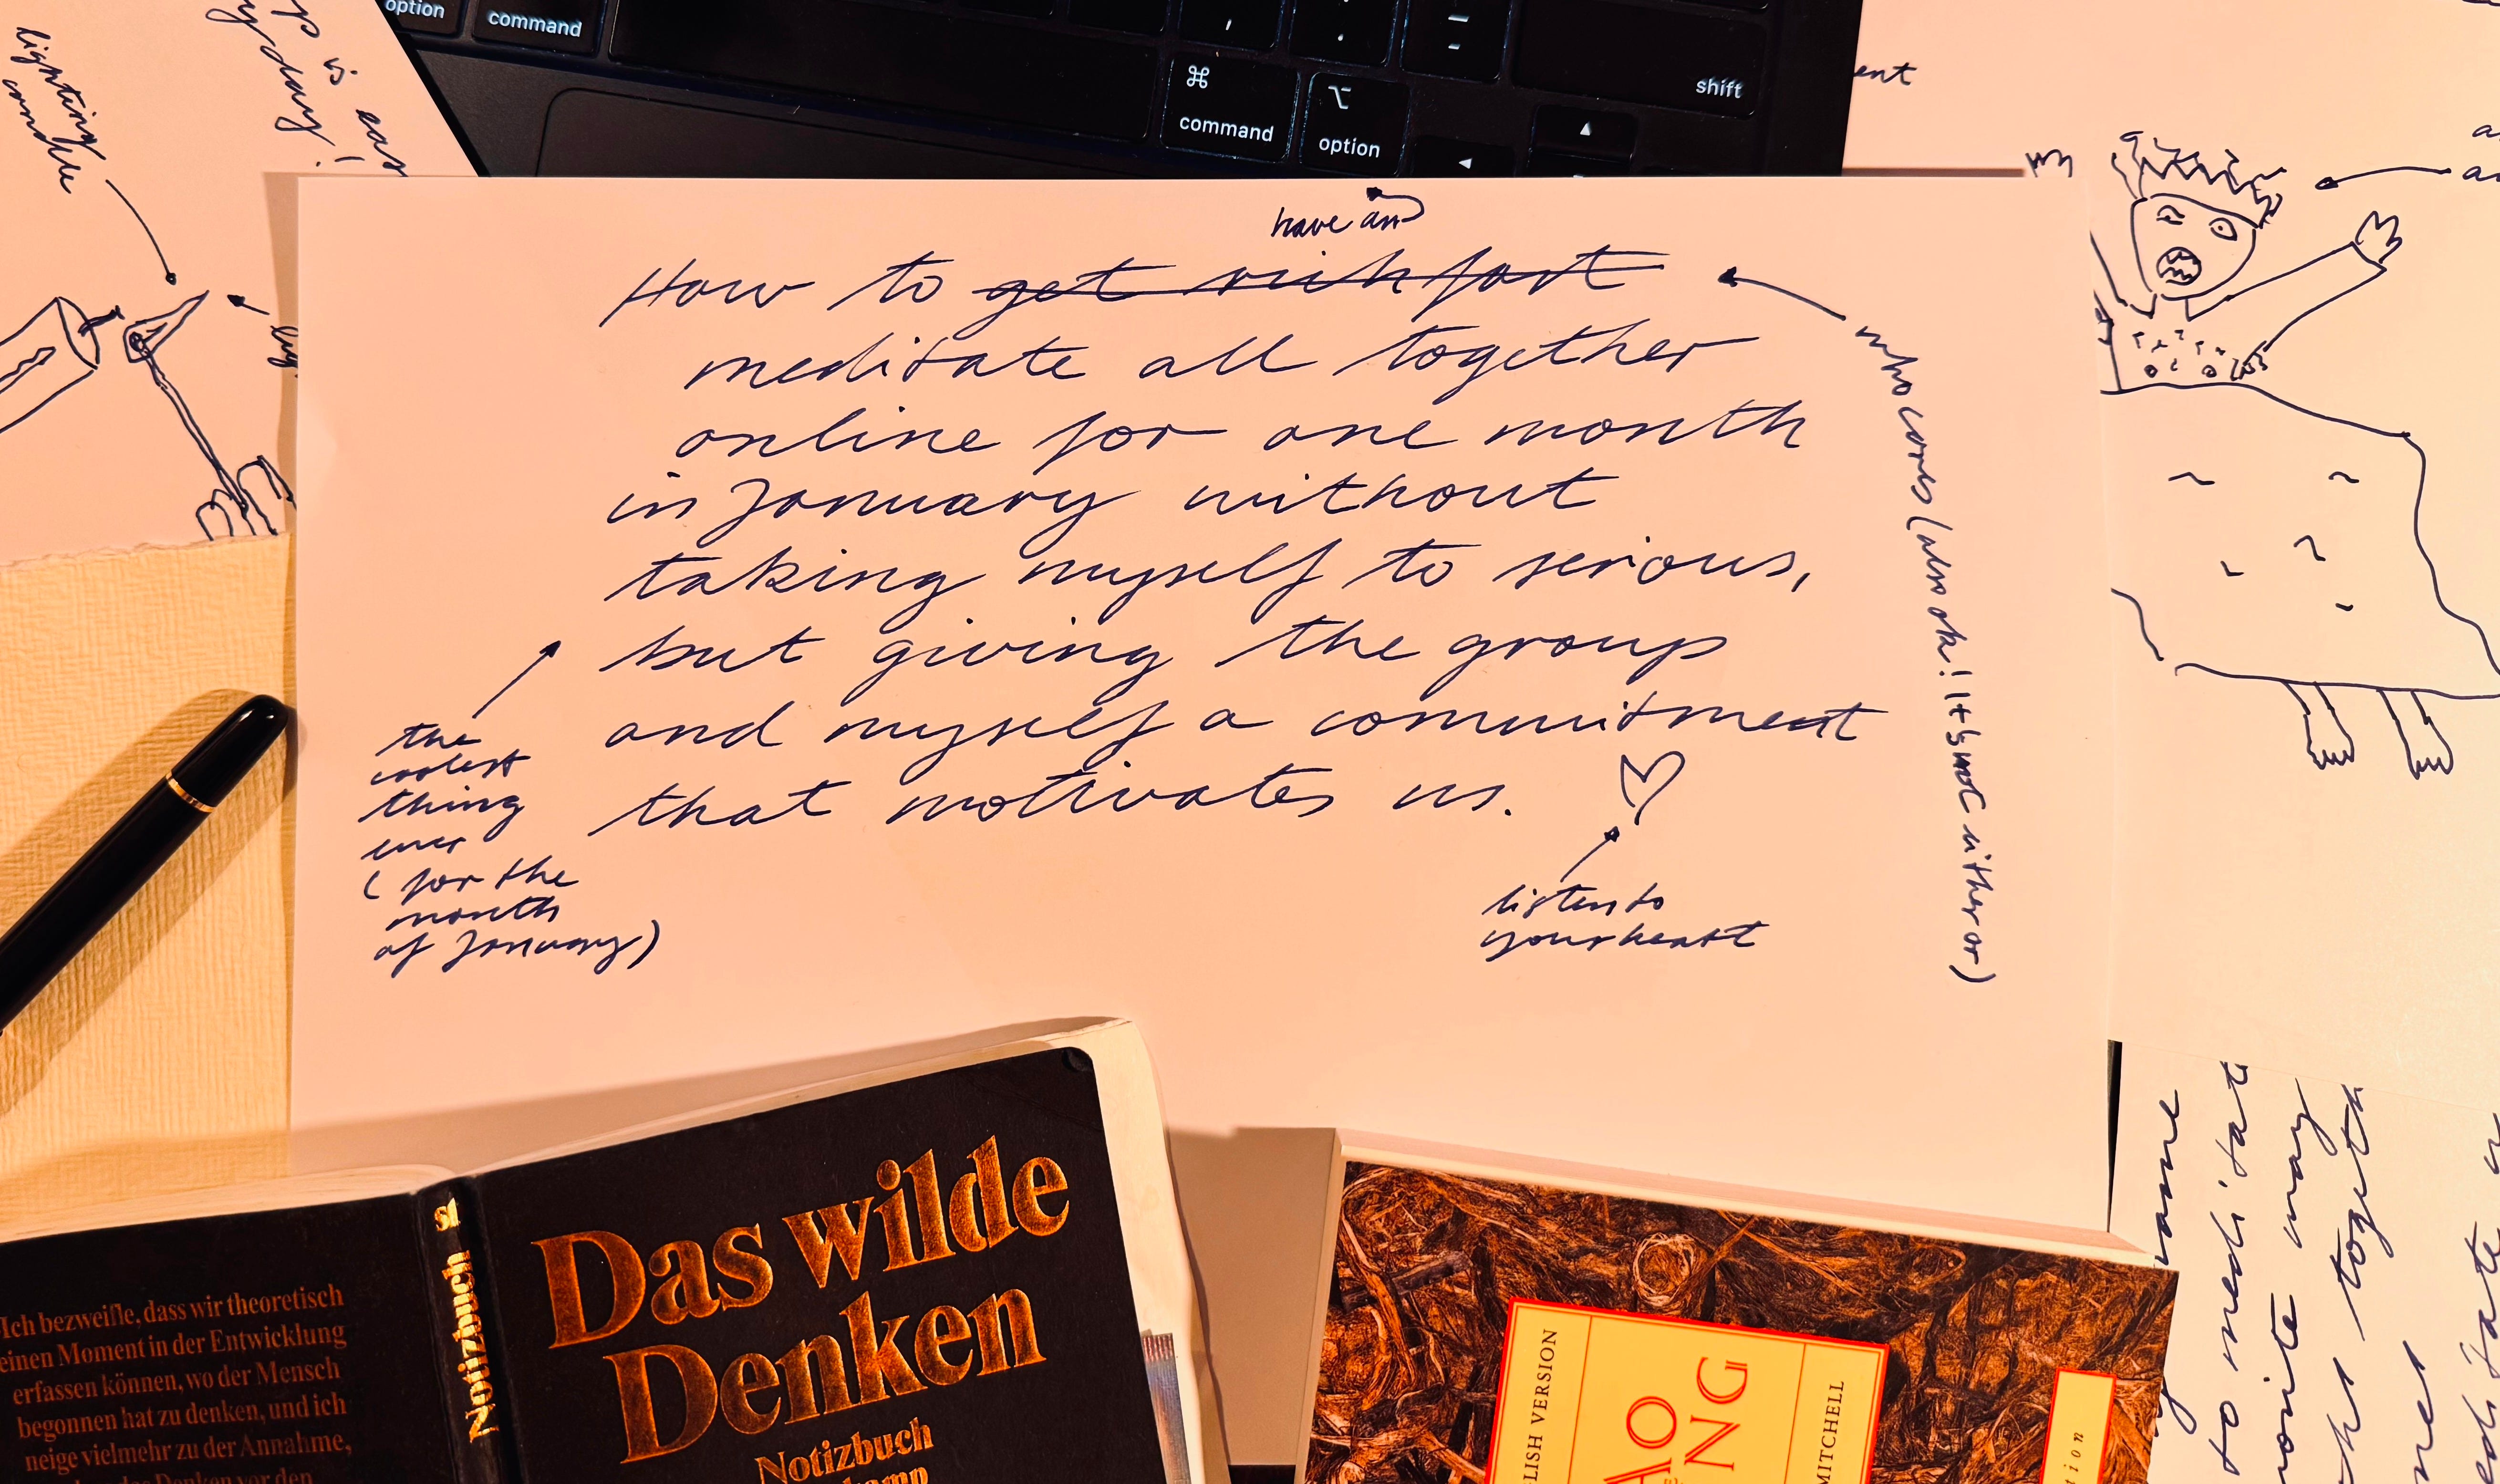 option
command
,
.
–
-
⌘
command
⌥
option
shift
▲
◄
is easy
yday!
lighting
candle
ent
have an
How to get rich fast
meditate all together
online for one month
in January without
taking myself to serious,
but giving the group
and myself a commitment
that motivates us.
who cares (also ok! It's not either or)
the
coolest
thing
ever
( for the
month
of January)
listen to
your heart
to meditat
togeth
Das wilde
Denken
Notizbuch
st
Notizbuch
Ich bezweifle, dass wir theoretisch
einen Moment in der Entwicklung
erfassen können, wo der Mensch
begonnen hat zu denken, und ich
neige vielmehr zu der Annahme,
Denken vor den
LISH VERSION
AO
NG
MITCHELL
tion